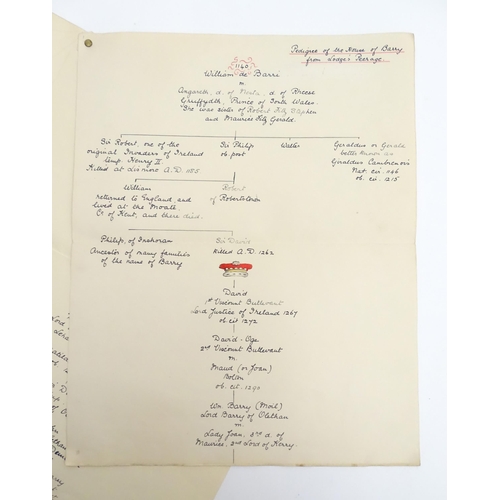 Pedigree of the House of Barry
from Lodge's Peerage.
1140
William de Barri
m
Angareth, d. of Nesta, d. of Rheese
Gruffydth, Prince of South Wales.
She was sister of Robert Fitz Stephen
and Maurice Fitz Gerald.
Sir Robert one of the
original Invaders of Ireland
temp. Henry II
Killed at Lismore A.D. 1185
Sir Philip
ob. post
Walter
Geraldus or Gerald
better known as
Giraldus Cambrensis
Nat. cir. 1146
ob. cir. 1215
William
returned to England, and
lived at the Moate
Co. of Kent, and there died.
Robert
of Robertstown
Philip, of Inshoran
Ancestor of many families
of the name of Barry
Sir David
Killed A.D. 1262
David
1st Viscount Buttevant
Lord Justice of Ireland 1267
ob. cit 1272
David - Oge
2nd Viscount Buttevant
m
Maud (or Joan)
Bolton
ob. cir. 1290
Wm Barry (Moil)
Lord Barry of Olethan
m
Lady Joan, 3rd d. of
Maurice, 3rd Lord of Kerry.